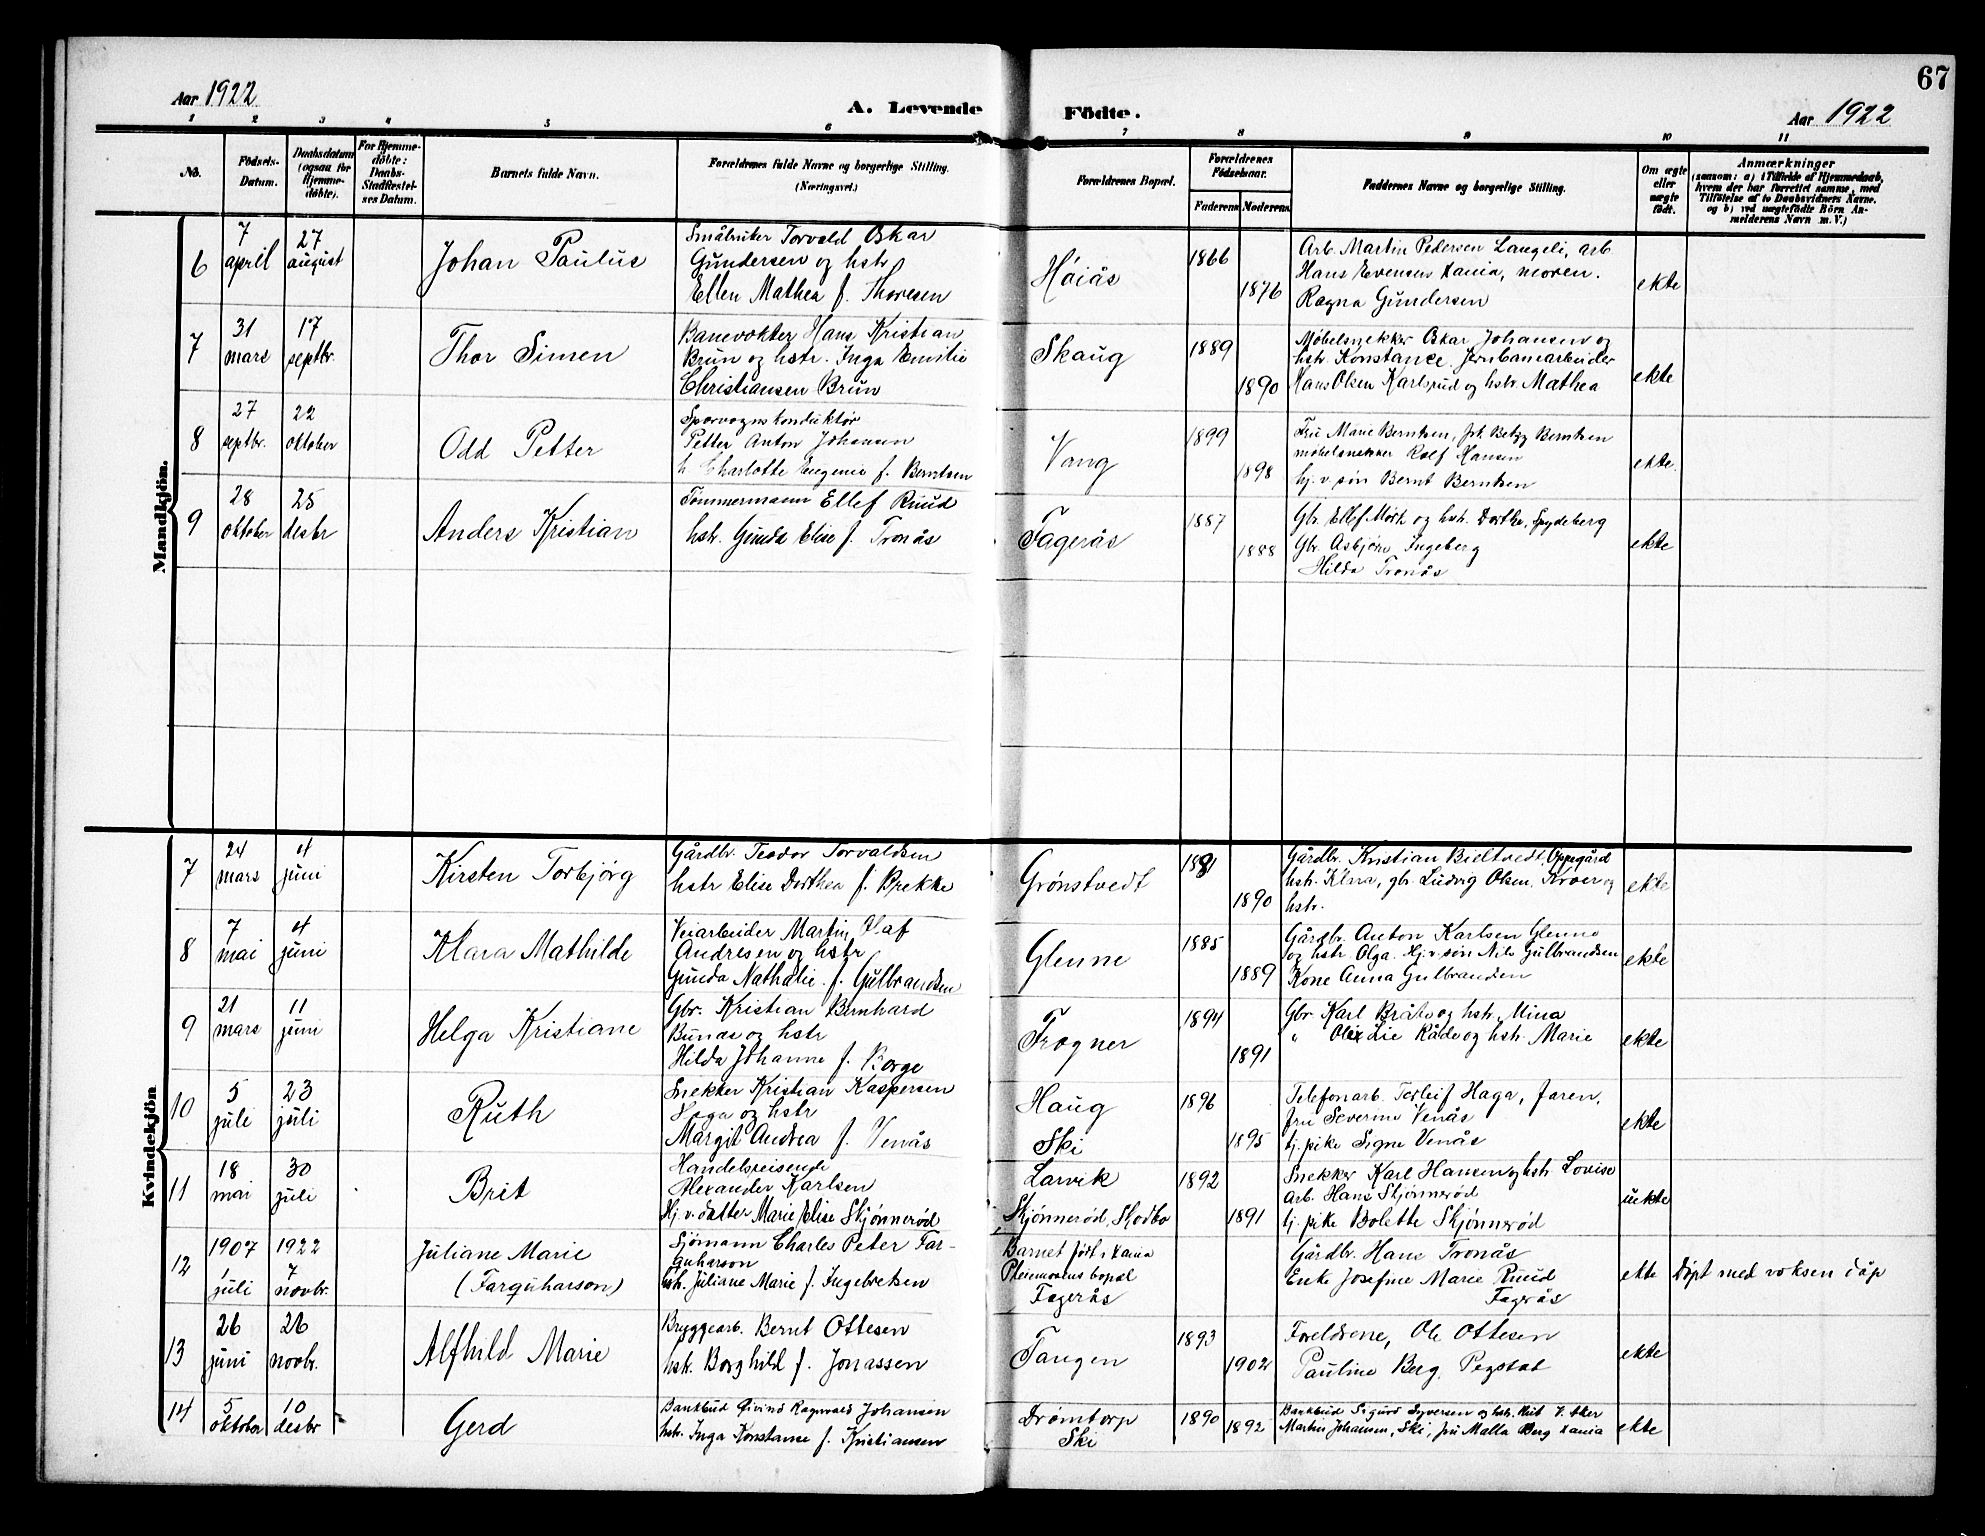 67
Aar 1922
A. Levende Födte.
Aar 1922
1 2 3 4 5 6 7 8 9 10 11
No.
Födsels-
Datum.
Daabsdatum
(ogsaa for
Hjemme-
døbte).
For Hjemme-
döbte:
Daabs-
Stadfæstel-
ses Datum.
Barnets fulde Navn.
Forældrenes fulde Navne og borgerlige Stilling.
(Næringsvei.)
Forældrenes Bopæl.
Forældrenes
Födselsaar.
Faderens Moderens
Faddernes Navne og borgerlige Stilling.
Om ægte
eller
uægte
født.
Anmærkninger
(saasom: a) i Tilfælde af Hjemmedaab,
hvem der har forrettet samme, med
Tilføielse af to Daabsvidners Navne.
og b) ved uægtefödte Börn An-
melderens Navn m. V.)
Mandkjön.
6
7
april
27
august
Johan Paulus
Småbruker Torvald Oskar
Gundersen og hstr
Ellen Mathea f. Thoresen
Höiås
1866
1876
Arb. Martin Pedersen Langeli, arb.
Hans Evensen Xania, moren.
Ragna Gundersen
ekte
7
31
mars
17
septbr.
Thor Simen
Banevokter Hans Kristian
Brun og hstr. Inga Emilie
Christiansen Brun
Skaug
1889
1890
Møbelsnekker Oskar Johansen og
hstr. Konstance. Jernbanearbeider
Hans Olsen Karlsrud og hstr. Mathea
ekte
8
27
septbr.
22
oktober
Odd Petter
Sporvognskonduktør
Petter Anton Johansen
h. Charlotte Eugenie f. Berntsen
Vang
1899
1898
Fru Marie Berntsen, frk. Betzy Berntsen
møbelsnekker Rolf Hansen
hj. v. søn Bernt Berntsen
ekte.
9
28
oktober
25
desbr
Anders Kristian
Tømmermann Ellef Ruud
hstr. Gunda Elise f. Tronås
Fagerås
1887
1888
Gbr. Ellef Mørk og hstr. Dorthe, Spydeberg
Gbr. Asbjørn Ingeberg
Hilda Tronås
ekte
Kvindekjön
7
24
mars
4
juni
Kirsten Torbjörg
Gårdbr. Teodor Torvaldsen
hstr Elise Dorthea f. Brekke
Grönstvedt
1881
1890
Gårdbr. Kristian Bieltvedt, Oppegård
hstr. Klara, gbr. Ludvig Olsen, Kroer og
hstr.
ekte
8
7
mai
4
juni
Klara Mathilde
Veiarbeider Martin Olaf
Andresen og hstr
Gunda Nathalie f. Gulbrandsen
Glenne
1885
1889
Gårdbr. Anton Karlsen Glenne
og hstr. Olga. Hj. v. søn Nils Gulbrandsen
Kone Anna Gulbrandsen
ekte
9
21
mars
11
juni
Helga Kristiane
Gbr. Kristian Bernhard
Bunæs og hstr
Hilda Johanne f. Borge
Frogner
1894
1891
Gbr Karl Bråte og hstr. Mina
" Olex Lie Råde og hstr. Marie
ekte
10
5
juli
23
juli
Ruth
Snekker Kristian Kaspersen
Haga og hstr
Margit Andrea f. Venås
Haug
Ski
1896
1895
Telefonarb. Torleif Haga, faren.
fru Severine Venås
tj. pike Signe Venås
ekte
11
18
mai
30
juli
Brit
Handelsreisende
Alexander Karlsen
Hj. v. datter Marie Elise Skjønnerød
Larvik
Skjönneröd, Skodbo
1892
1891
Snekker Karl Hansen og hstr Lovise
Arb. Hans Skjønnerød
tj. pike Bolette Skjønnerød
uekte
12
1907
1
juli
1922
7
novbr.
Juliane Marie
(Farquharson)
Sjömann Charles Peter Far-
quharson
hstr. Juliane Marie f. Ingebretsen
Barnet født i Xania
Pleiemorens bopæl
Fagerås
Gårdbr. Hans Tronås
Enke Josefine Marie Ruud
Fagerås
ekte
Döpt med voksen dåp
13
26
juni
26
novbr.
Alfhild Marie
Bryggearb. Bernt Ottesen
hstr. Borghild f. Jonassen
Tangen
1893
1902
Foreldrene, Ole Ottesen
Pauline Berg, Pegstat
ekte
14
5
oktober
10
desbr
Gerd
Bankbud Øivind Ragnvald Johansen
hstr. Inga Konstanse f. Kristiansen
Drömtorp
Ski
1890
1892
Bankbud Sigurd Syversen og hstr.
Martin Johansen, Ski, fru Malla Berg Xania
ekte